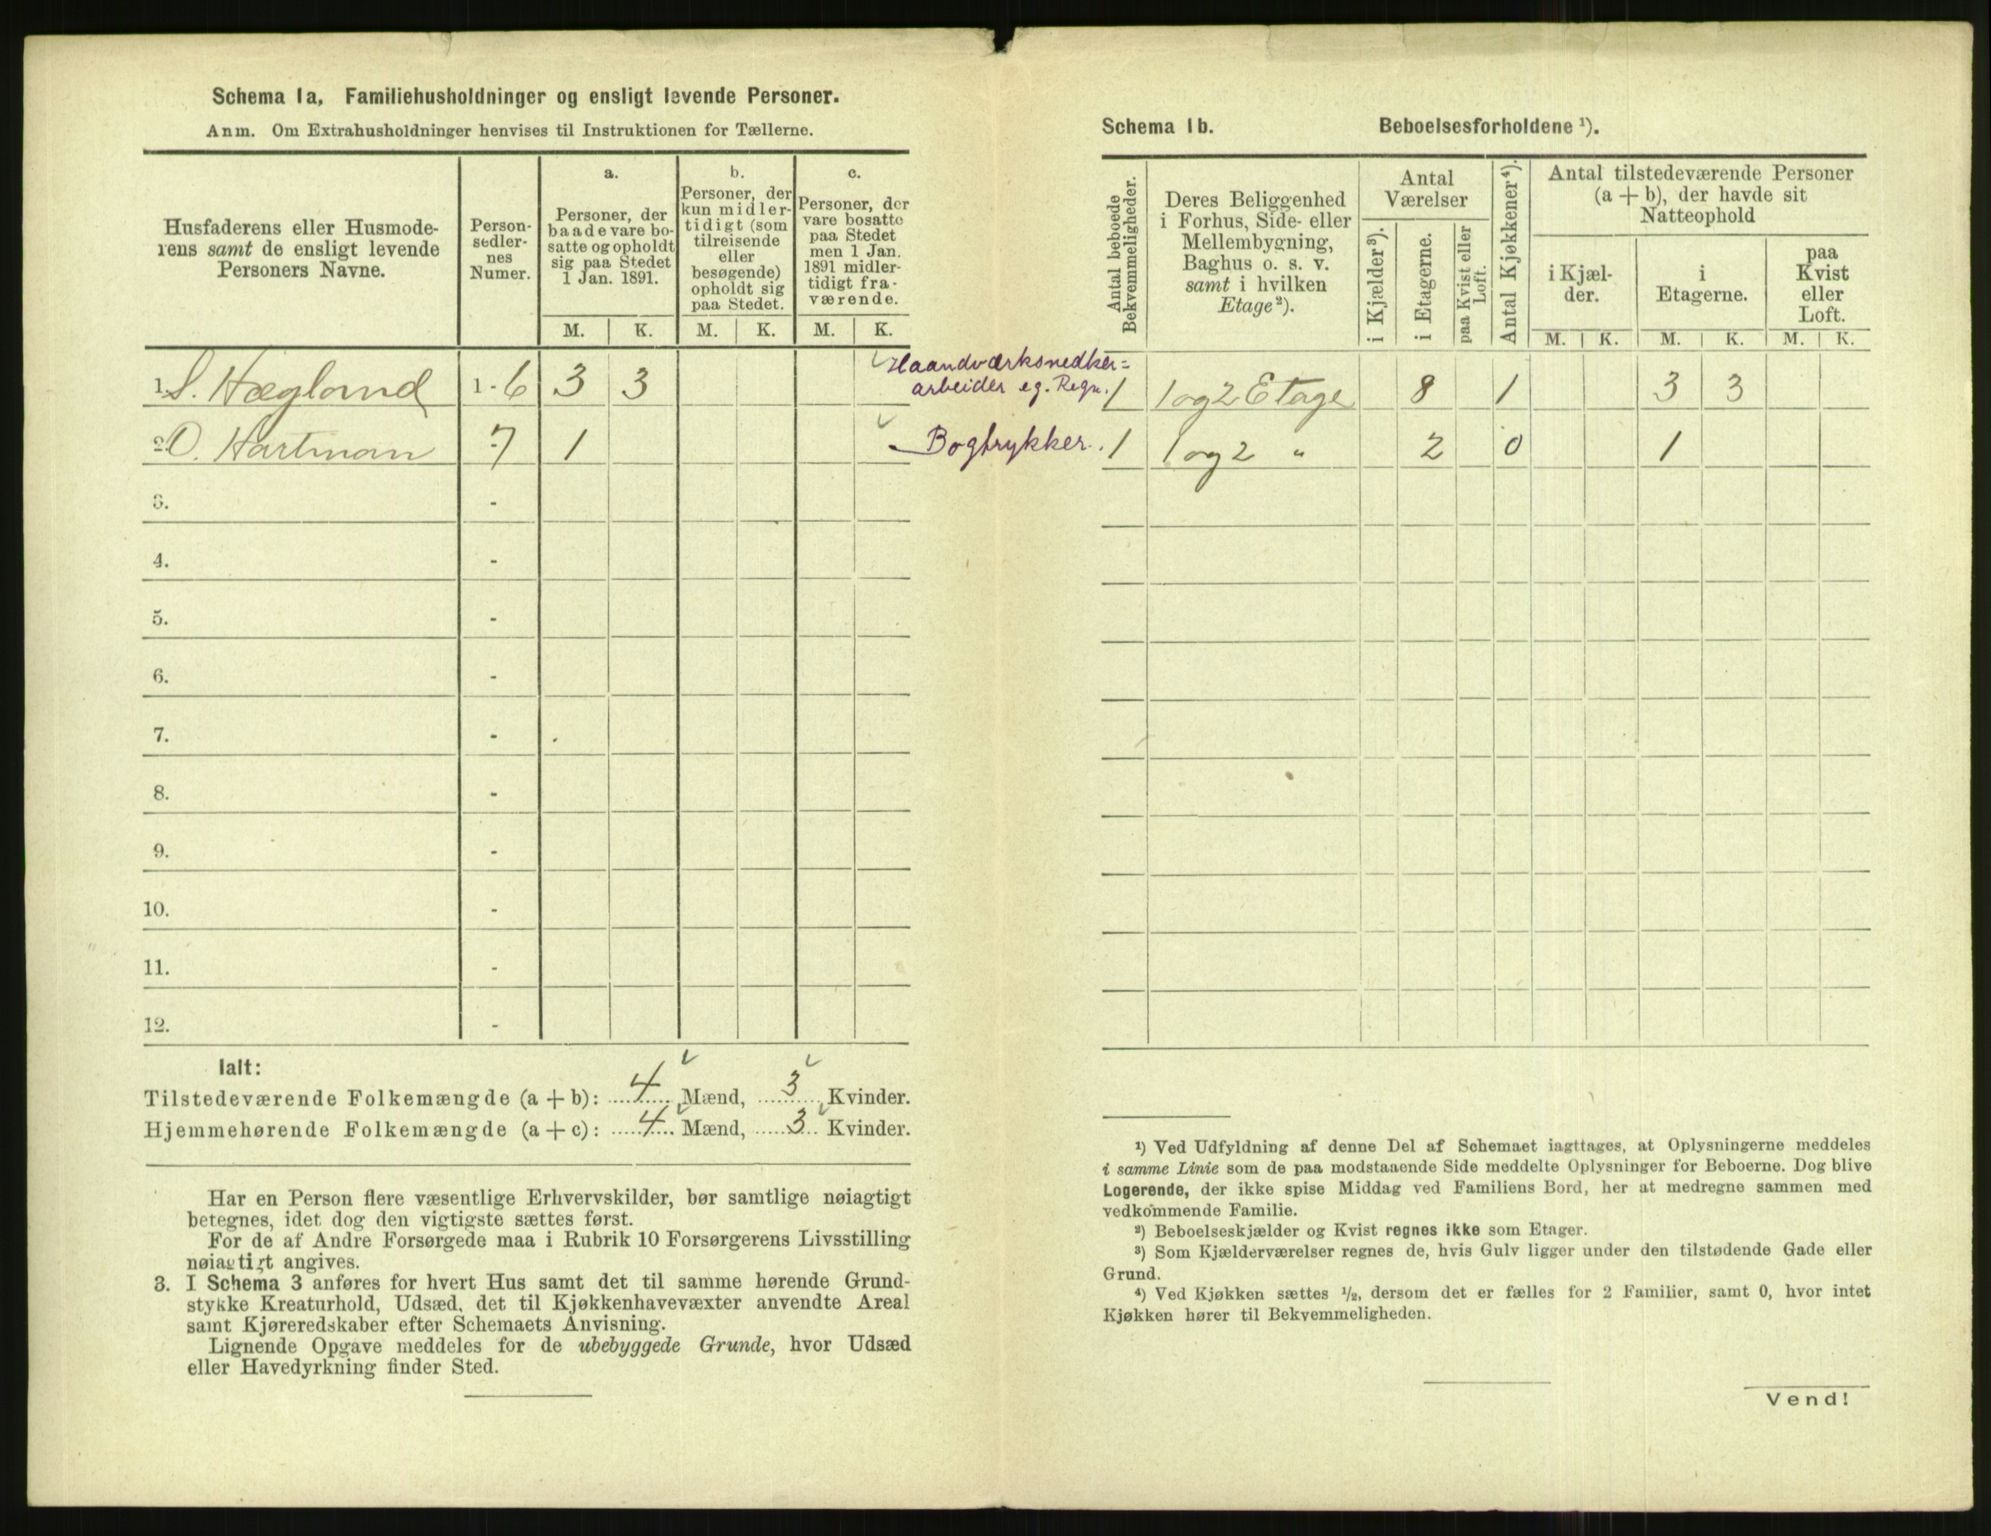 Schema 1a, Familiehusholdninger og ensligt levende Personer.
Anm. Om Extrahusholdninger henvises til Instruktionen for Tællerne.
Husfaderens eller Husmode-
rens samt de ensligt levende
Personers Navne.
Person-
sedler-
nes
Numer.
a.
Personer, der
baade vare bo-
satte og opholdt
sig paa Stedet
1 Jan. 1891.
b.
Personer, der
kun midler-
tidigt (som
tilreisende
eller
besøgende)
opholdt sig
paa Stedet.
c.
Personer, der
vare bosatte
paa Stedet
men 1 Jan.
1891 midler-
tidigt fra-
værende.
M. K. M. K. M. K.
1. S. Hægland 1 - 6 3 3 Haandværksnedker=
arbeider eg. Regn.
2. O. Hartman 7 1 Bogtrykker.
3. -
4. -
5. -
6. -
7. -
8. -
9. -
10. -
11. -
12. -
Ialt:
Tilstedeværende Folkemængde (a + b): 4 Mænd, 3 Kvinder.
Hjemmehørende Folkemængde (a + c): 4 Mænd, 3 Kvinder.
Har en Person flere væsentlige Erhvervskilder, bør samtlige nøiagtigt
betegnes, idet dog den vigtigste sættes først.
For de af Andre Forsørgede maa i Rubrik 10 Forsørgerens Livsstilling
nøiagtigt angives.
3. I Schema 3 anføres for hvert Hus samt det til samme hørende Grund-
stykke Kreaturhold, Udsæd, det til Kjøkkenhavevæxter anvendte Areal
samt Kjøreredskaber efter Schemaets Anvisning.
Lignende Opgave meddeles for de ubebyggede Grunde, hvor Udsæd
eller Havedyrkning finder Sted.
Schema 1b. Beboelsesforholdene ¹).
Antal beboede
Bekvemmeligheder.
Deres Beliggenhed
i Forhus, Side- eller
Mellembygning,
Baghus o. s. v.
samt i hvilken
Etage²).
Antal
Værelser
i Kjælder³).
i Etagerne.
paa Kvist eller
Loft.
Antal Kjøkkener⁴).
Antal tilstedeværende Personer
(a + b), der havde sit
Natteophold
i Kjæl-
der.
i
Etagerne.
paa
Kvist
eller
Loft.
M. K. M. K. M. K.
1 1 og 2 Etage 8 1 3 3
1 1 og 2 " 2 0 1
¹) Ved Udfyldning af denne Del af Schemaet iagttages, at Oplysningerne meddeles
i samme Linie som de paa modstaaende Side meddelte Oplysninger for Beboerne. Dog blive
Logerende, der ikke spise Middag ved Familiens Bord, her at medregne sammen med
vedkommende Familie.
²) Beboelseskjælder og Kvist regnes ikke som Etager.
³) Som Kjælderværelser regnes de, hvis Gulv ligger under den tilstødende Gade eller
Grund.
⁴) Ved Kjøkken sættes ½, dersom det er fælles for 2 Familier, samt 0, hvor intet
Kjøkken hører til Bekvemmeligheden.
Vend!